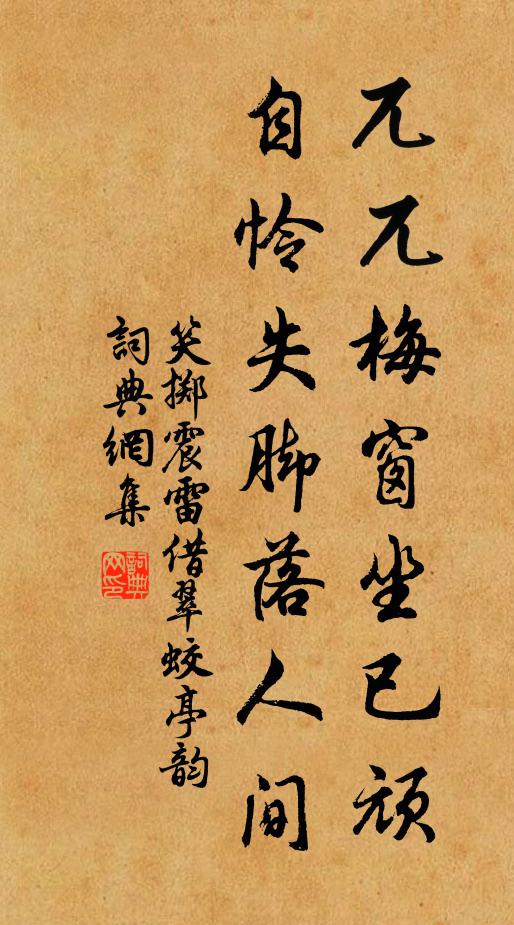 兀兀梅窗坐已頑
自怜失脚落人间
笑擲震雷借翠蛟亭韵
詞典網集
詞典
网印